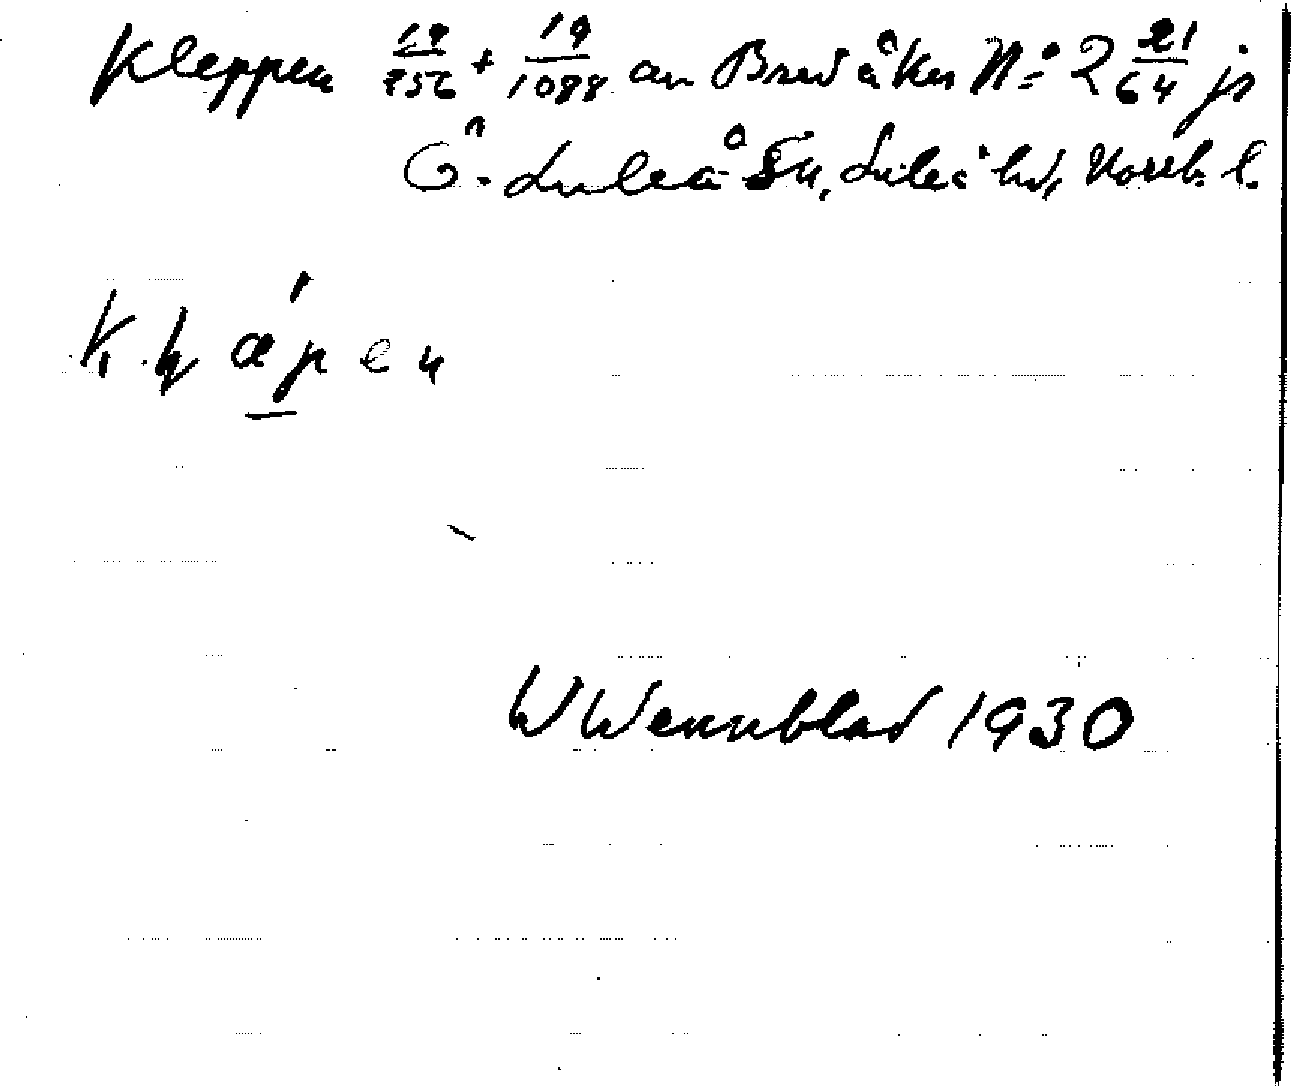 Kleppen 19/756 + 19/1088 av Bredåker No 2 21/64 i
Ö. Luleå Sn, Luleå hd, Norrb. l.
W Wennblad 1930